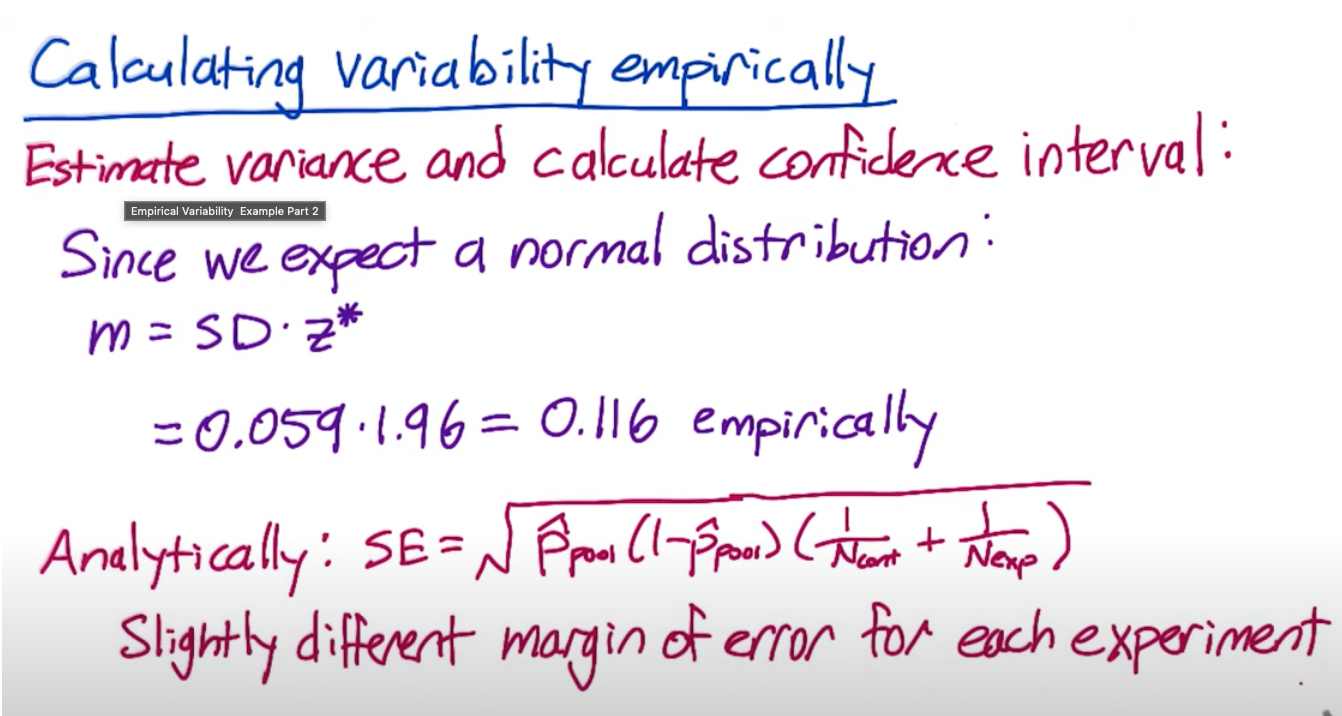 Calculating variability empirically
Estimate variance and calculate confidence interval:
Empirical Variability Example Part 2
Since we expect a normal distribution:
m = SD · z*
= 0.059 · 1.96 = 0.116 empirically
Analytically: SE = √(p̂pool (1-p̂pool) (1/Ncont + 1/Nexp))
Slightly different margin of error for each experiment